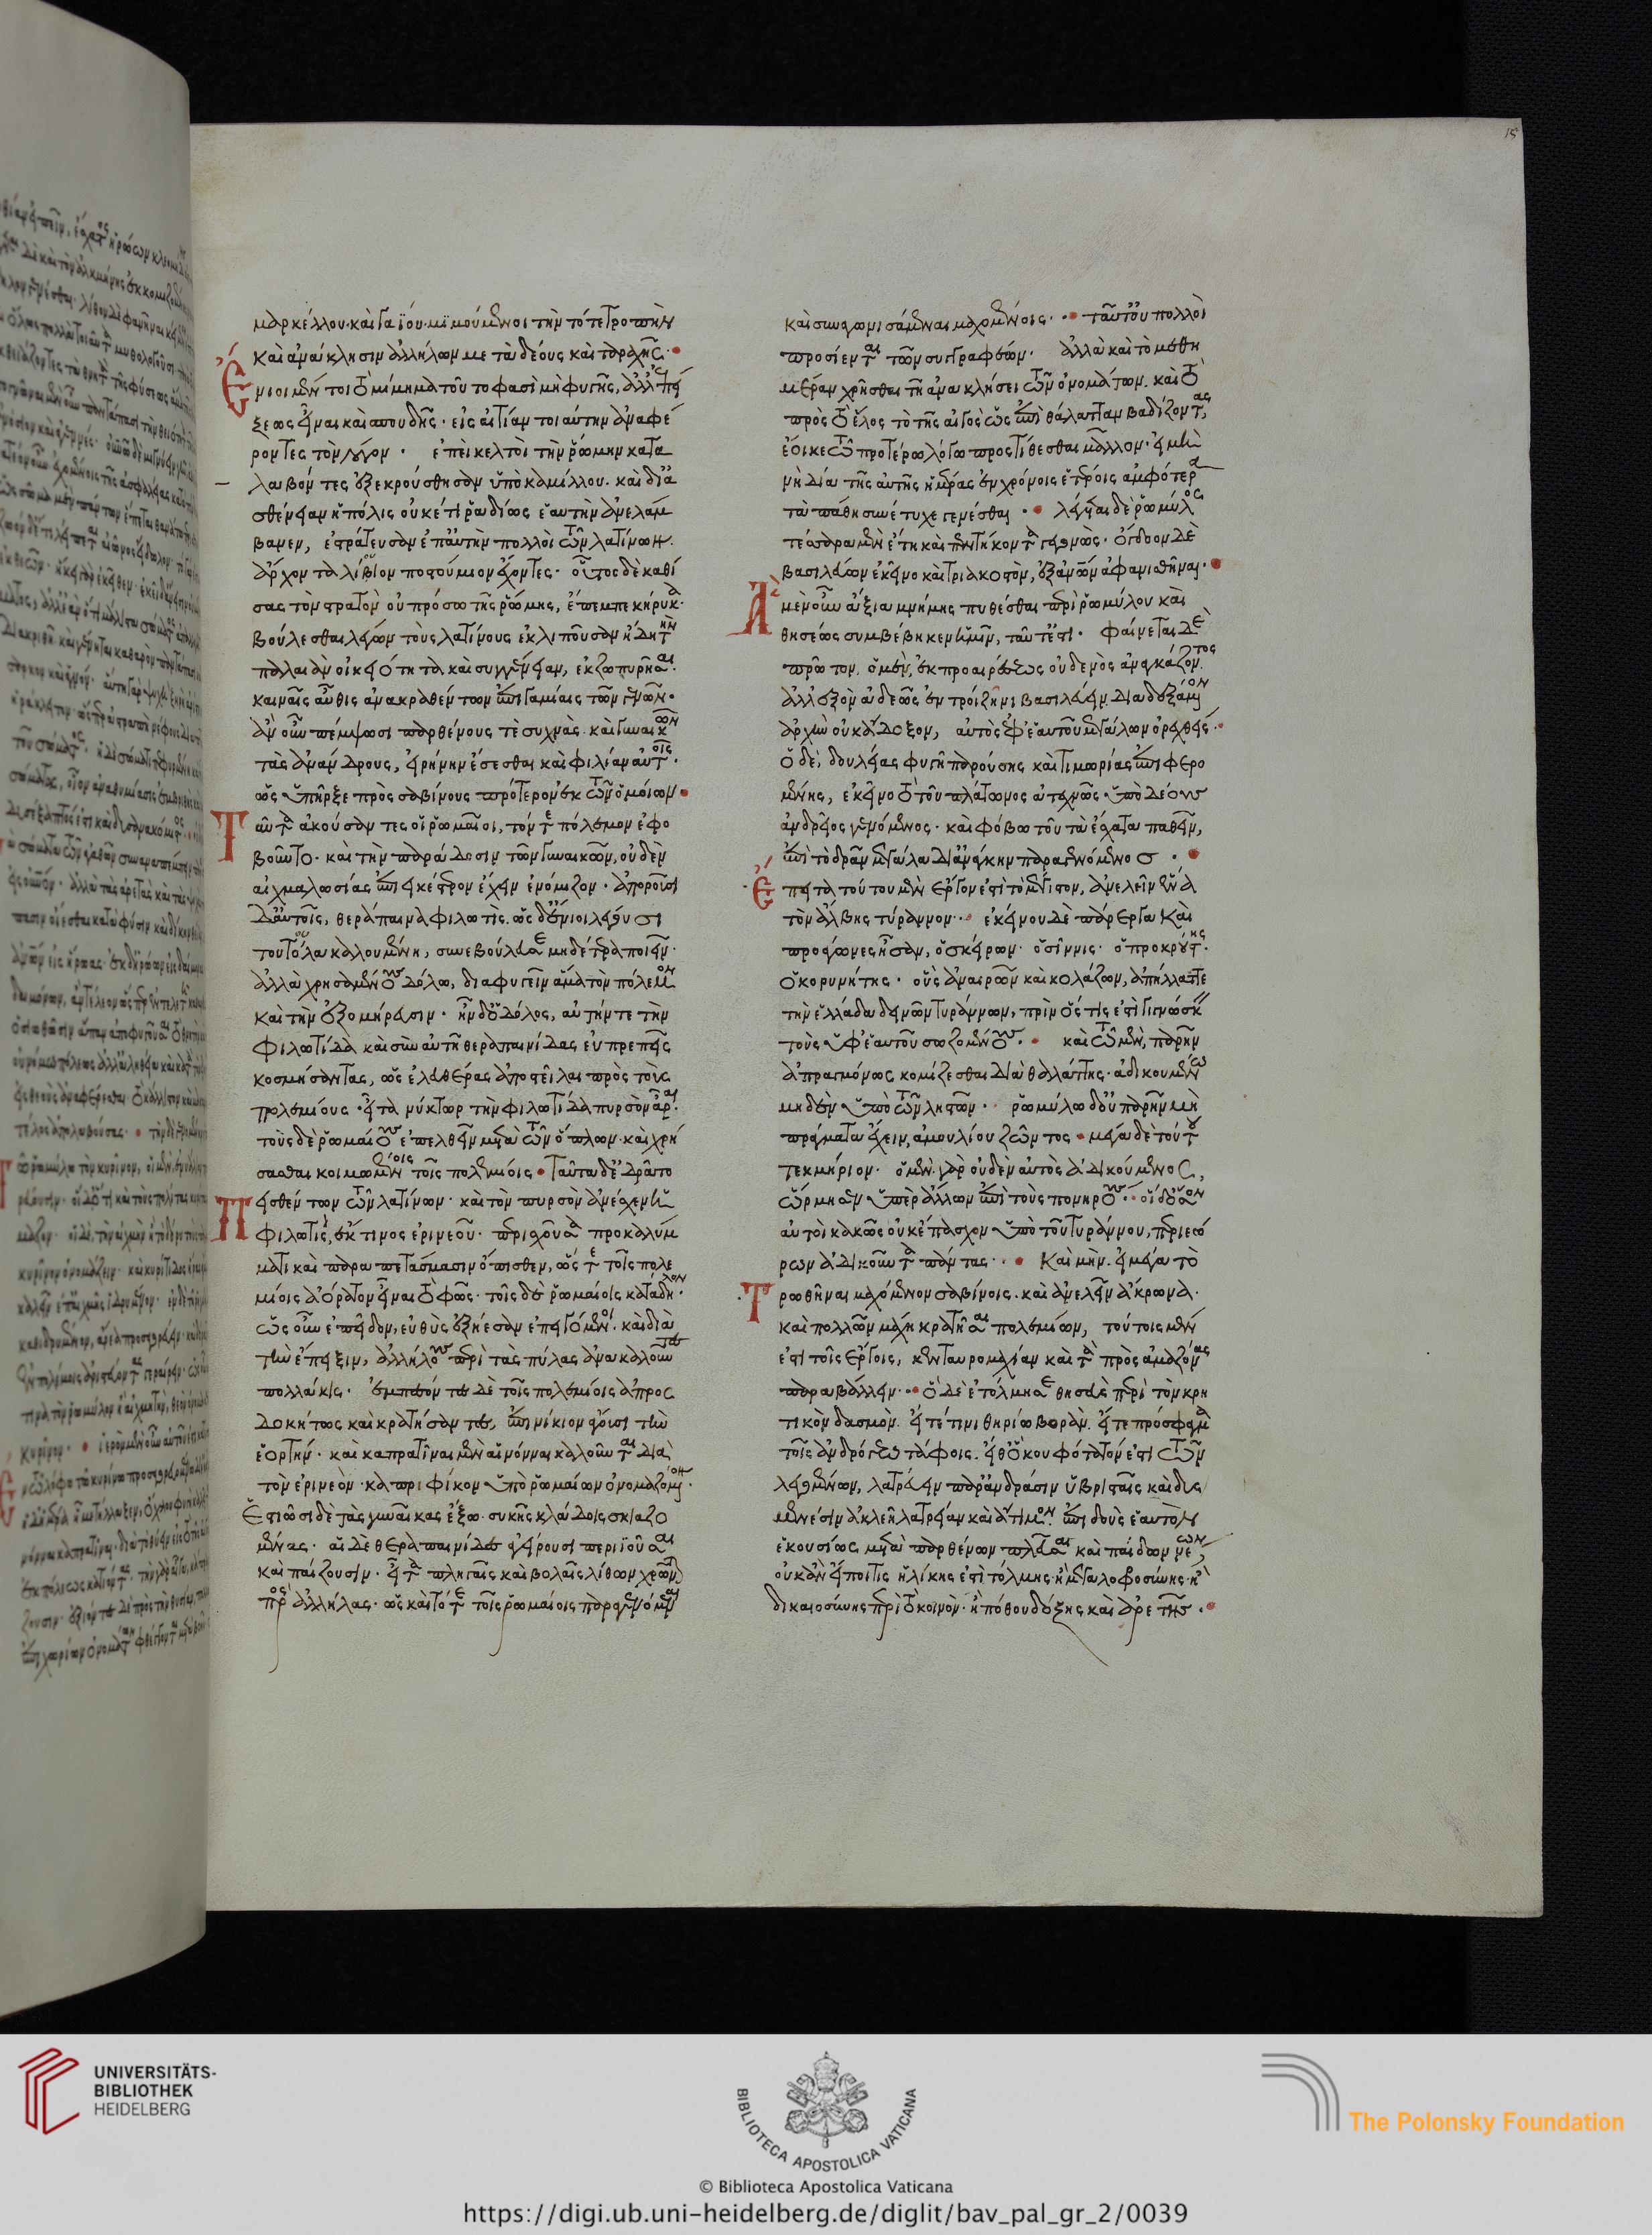 15
μαρκέλλου· καὶ γαΐου· μιμούμενοι τὴν τότε τροπὴν
καὶ ἀνάκλησιν ἀλλήλων μετὰ δέους καὶ ταραχῆς·
Ἔνιοι μέντοι τὸ μίμημα τοῦτο φασὶ μὴ φυγῆς, ἀλλ' ἐπεί
ξεως εἶναι καὶ σπουδῆς· εἰς αἰτίαν τοιαύτην ἀναφέ
ροντες τὸν λόγον· ἐπεὶ κελτοὶ τὴν ῥώμην κατα
λαβόντες ἐξεκρούσθησαν ὑπὸ καμίλλου· καὶ δι' ἀ
σθένειαν ἡ πόλις οὐκέτι ῥαδίως ἑαυτὴν ἀνελάμ
βανεν, ἐστράτευσαν ἐπ' αὐτὴν πολλοὶ τῶν λατίνων·
ἄρχοντα λίβιον ποστούμιον ἔχοντες· οὗτος δὲ καθί
σας τὸν στρατὸν οὐ πρόσω τῆς ῥώμης, ἔπεμπε κήρυκα·
βούλεσθαι λέγων τοὺς λατίνους ἐκλιποῦσαν ἤδη τὴν
παλαιὰν οἰκειότητα καὶ συγγένειαν, ἐκζωπυρῆσαι·
καιναῖς αὖθις ἀνακραθέντων ἐπιγαμίαις τῶν γενῶν·
ἂν οὖν πέμψωσι παρθένους τὲ συχνὰς· καὶ γυναικῶν
τὰς ἀνάνδρους, εἰρήνην ἔσεσθαι καὶ φιλίαν αὐτοῖς·
ὡς ὑπῆρξε πρὸς σαβίνους πρότερον ἐκ τῶν ὁμοίων
Ταῦτα ἀκούσαντες οἱ ῥωμαῖοι, τόν τε πόλεμον ἐφο
βοῦντο· καὶ τὴν παράδοσιν τῶν γυναικῶν, οὐδὲν
αἰχμαλωσίας ἐπιεικέστερον ἔχειν ἐνόμιζον· ἀποροῦσι
δ' αὐτοῖς, θεράπαινα φιλωτὶς· ὡς δ' ἔνιοι λέγουσι
τουτούλα καλουμένη, συνεβούλευσε μηδέτερα ποιεῖν·
ἀλλὰ χρησαμένους δόλω, διαφυγεῖν ἅμα τὸν πόλεμον
καὶ τὴν ἐξομήρευσιν· ἦν δ' ὁ δόλος, αὐτήν τε τὴν
φιλωτίδα καὶ σὺν αὐτῆ θεραπαινίδας εὐπρεπεῖς
κοσμήσαντας, ὡς ἐλευθέρας ἀποστεῖλαι πρὸς τοὺς
πολεμίους· εἶτα νύκτωρ τὴν φιλωτίδα πυρσὸν ἆραι·
τοὺς δὲ ῥωμαίους ἐπελθεῖν μετὰ τῶν ὅπλων· καὶ χρή
σασθαι κοιμωμένοις τοῖς πολεμίοις· Ταῦτα δ' ἐδρᾶτο
πεισθέντων τῶν λατίνων· καὶ τὸν πυρσὸν ἀνέσχεν ἡ
φιλωτὶς, ἔκ τινος ἐρινεοῦ· περισχοῦσα προκαλύμ
μασι καὶ παραπετάσμασιν ὄπισθεν, ὥστε τοῖς πολε
μίοις ἀόρατον εἶναι τὸ φῶς· τοῖς δὲ ῥωμαίοις κατάδηλον·
ὡς οὖν ἐπεῖδον, εὐθὺς ἐξήεσαν ἐπειγόμενοι· καὶ διὰ
τὴν ἔπειξιν, ἀλλήλους περὶ τὰς πύλας ἀνακαλοῦντες
πολλάκις· ἐμπεσόντες δὲ τοῖς πολεμίοις ἀπροσ
δοκήτως καὶ κρατήσαντες, ἐπινίκιον ἄγουσι τὴν
ἑορτήν· καὶ καπρατῖναι μὲν αἱ νόνναι καλοῦνται διὰ
τὸν ἐρινεὸν· καπριφίκον ὑπὸ ῥωμαίων ὀνομαζόμενον·
Ἑστιῶσι δὲ τὰς γυναῖκας ἔξω· συκῆς κλάδοις σκιαζο
μένας· αἱ δὲ θεραπαινίδες ἀγείρουσι περιϊοῦσαι
καὶ παίζουσιν· εἶτα πληγαῖς καὶ βολαῖς λίθων χρῶνται
πρὸς ἀλλήλας· ὡς καὶ τότε τοῖς ῥωμαίοις παραγενόμεναι
καὶ συναγωνισάμεναι μαχομένοις· ταῦτ' οὐ πολλοὶ
προσίενται τῶν συγγραφέων· ἀλλὰ καὶ τὸ μεθη
μέραν χρῆσθαι τῆ ἀνακλήσει τῶν ὀνομάτων· καὶ τὸ
πρὸς τὸ ἕλος τὸ τῆς αἰγὸς ὡς ἐπὶ θάλατταν βαδίζοντας,
ἔοικε τῶ προτέρω λόγω προστίθεσθαι μᾶλλον· εἰ μὴ
νὴ δία τῆς αὐτῆς ἡμέρας ἐν χρόνοις ἑτέροις ἀμφότερα
τὰ πάθη συνέτυχε γενέσθαι· λέγεται δὲ ῥωμύλος
τέσσαρα μὲν ἔτη καὶ πεντήκοντα γεγονὼς· ὄγδοον δὲ
βασιλεύων ἐκεῖνο καὶ τριακοστὸν, ἐξ ἀνθρώπων ἀφανισθῆναι·
Ἃ μὲν οὖν ἄξια μνήμης πυθέσθαι περὶ ῥωμύλου καὶ
θησέως συμβέβηκεν ἡμῖν, ταῦτ' ἔστι· Φαίνεται δὲ
πρῶτον, ὁ μὲν, ἐκ προαιρέσεως οὐδενὸς ἀναγκάζοντος
ἀλλ' ἐξὸν ἀδεῶς ἐν τροιζῆνι βασιλεύειν διαδεξάμενον
ἀρχὴν οὐκ ἄδοξον, αὐτὸς ἀφ' ἑαυτοῦ μεγάλων ὀρεχθείς·
Ὁ δὲ, δουλείας φυγῆ παρούσης καὶ τιμωρίας ἐπιφερο
μένης, ἐκεῖνο τὸ τοῦ πλάτωνος ἀτεχνῶς ὑπὸ δέους
ἀνδρεῖος γενόμενος· καὶ φόβω τοῦ τὰ ἔσχατα παθεῖν,
ἐπὶ τὸ δρᾶν μεγάλα δι' ἀνάγκην παραγενόμενος·
Ἔπειτα τούτου μὲν ἔργον ἐστὶ τὸ μέγιστον, ἀνελεῖν ἕνα
τὸν ἄλβης τύραννον· ἐκείνου δὲ πάρεργα καὶ
προαγῶνες ἦσαν, ὁ σκείρων· ὁ σίννις· ὁ προκρούστης·
ὁ κορυνήτης· οὓς ἀναιρῶν καὶ κολάζων, ἀπήλλαττε
τὴν ἑλλάδα δεινῶν τυράννων, πρὶν ὅστις ἐστὶ γινώσκειν
τοὺς ὑφ' ἑαυτοῦ σωζομένους· καὶ τῶ μὲν, παρῆν
ἀπραγμόνως κομίζεσθαι διὰ θαλάττης· ἀδικουμένω
μηδὲν ὑπὸ τῶν ληστῶν· ῥωμύλω δ' οὐ παρῆν μὴ
πράγματα ἔχειν, ἀμουλίου ζῶντος· μέγα δὲ τούτου
τεκμήριον· ὁ μὲν γὰρ οὐδὲν αὐτὸς ἀδικούμενος,
ὥρμησεν ὑπὲρ ἄλλων ἐπὶ τοὺς πονηρούς· οἱ δ' ὅσον
αὐτοὶ κακῶς οὐκ ἔπασχον ὑπὸ τοῦ τυράννου, περιεώ
ρων ἀδικοῦντα πάντας· Καὶ μὴν· εἰ μέγα τὸ
τρωθῆναι μαχόμενον σαβίνοις· καὶ ἀνελεῖν ἄκρωνα·
καὶ πολλῶν μάχη κρατῆσαι πολεμίων, τούτοις μὲν
ἔστι τοῖς ἔργοις, κενταυρομαχίαν καὶ τὰ πρὸς ἀμαζόνας
παραβάλλειν· Ὃ δὲ ἐτόλμησε θησεὺς περὶ τὸν κρη
τικὸν δασμὸν· εἴτέ τινι θηρίω βορὰν· εἴτε πρόσφαγμα
τοῖς ἀνδρόγεω τάφοις· εἴθ' ὃ κουφότατον ἐστὶ τῶν
λεγομένων, λατρεύειν παρ' ἀνδράσιν ὑβρισταῖς καὶ δυς
μενέσιν ἀκλεῆ λατρείαν καὶ ἄτιμον· ἐπιδοὺς ἑαυτὸν
ἑκουσίως μετὰ παρθένων πλεῦσαι καὶ παίδων νέων,
οὐκ ἂν εἴποι τις ἡλίκης ἐστὶ τόλμης· ἢ μεγαλοφροσύνης· ἢ
δικαιοσύνης περὶ τὸ κοινὸν· ἢ πόθου δόξης καὶ ἀρετῆς·
UNIVERSITÄTS-
BIBLIOTHEK
HEIDELBERG
BIBLIOTECA APOSTOLICA VATICANA
© Biblioteca Apostolica Vaticana
The Polonsky Foundation
https://digi.ub.uni-heidelberg.de/diglit/bav_pal_gr_2/0039